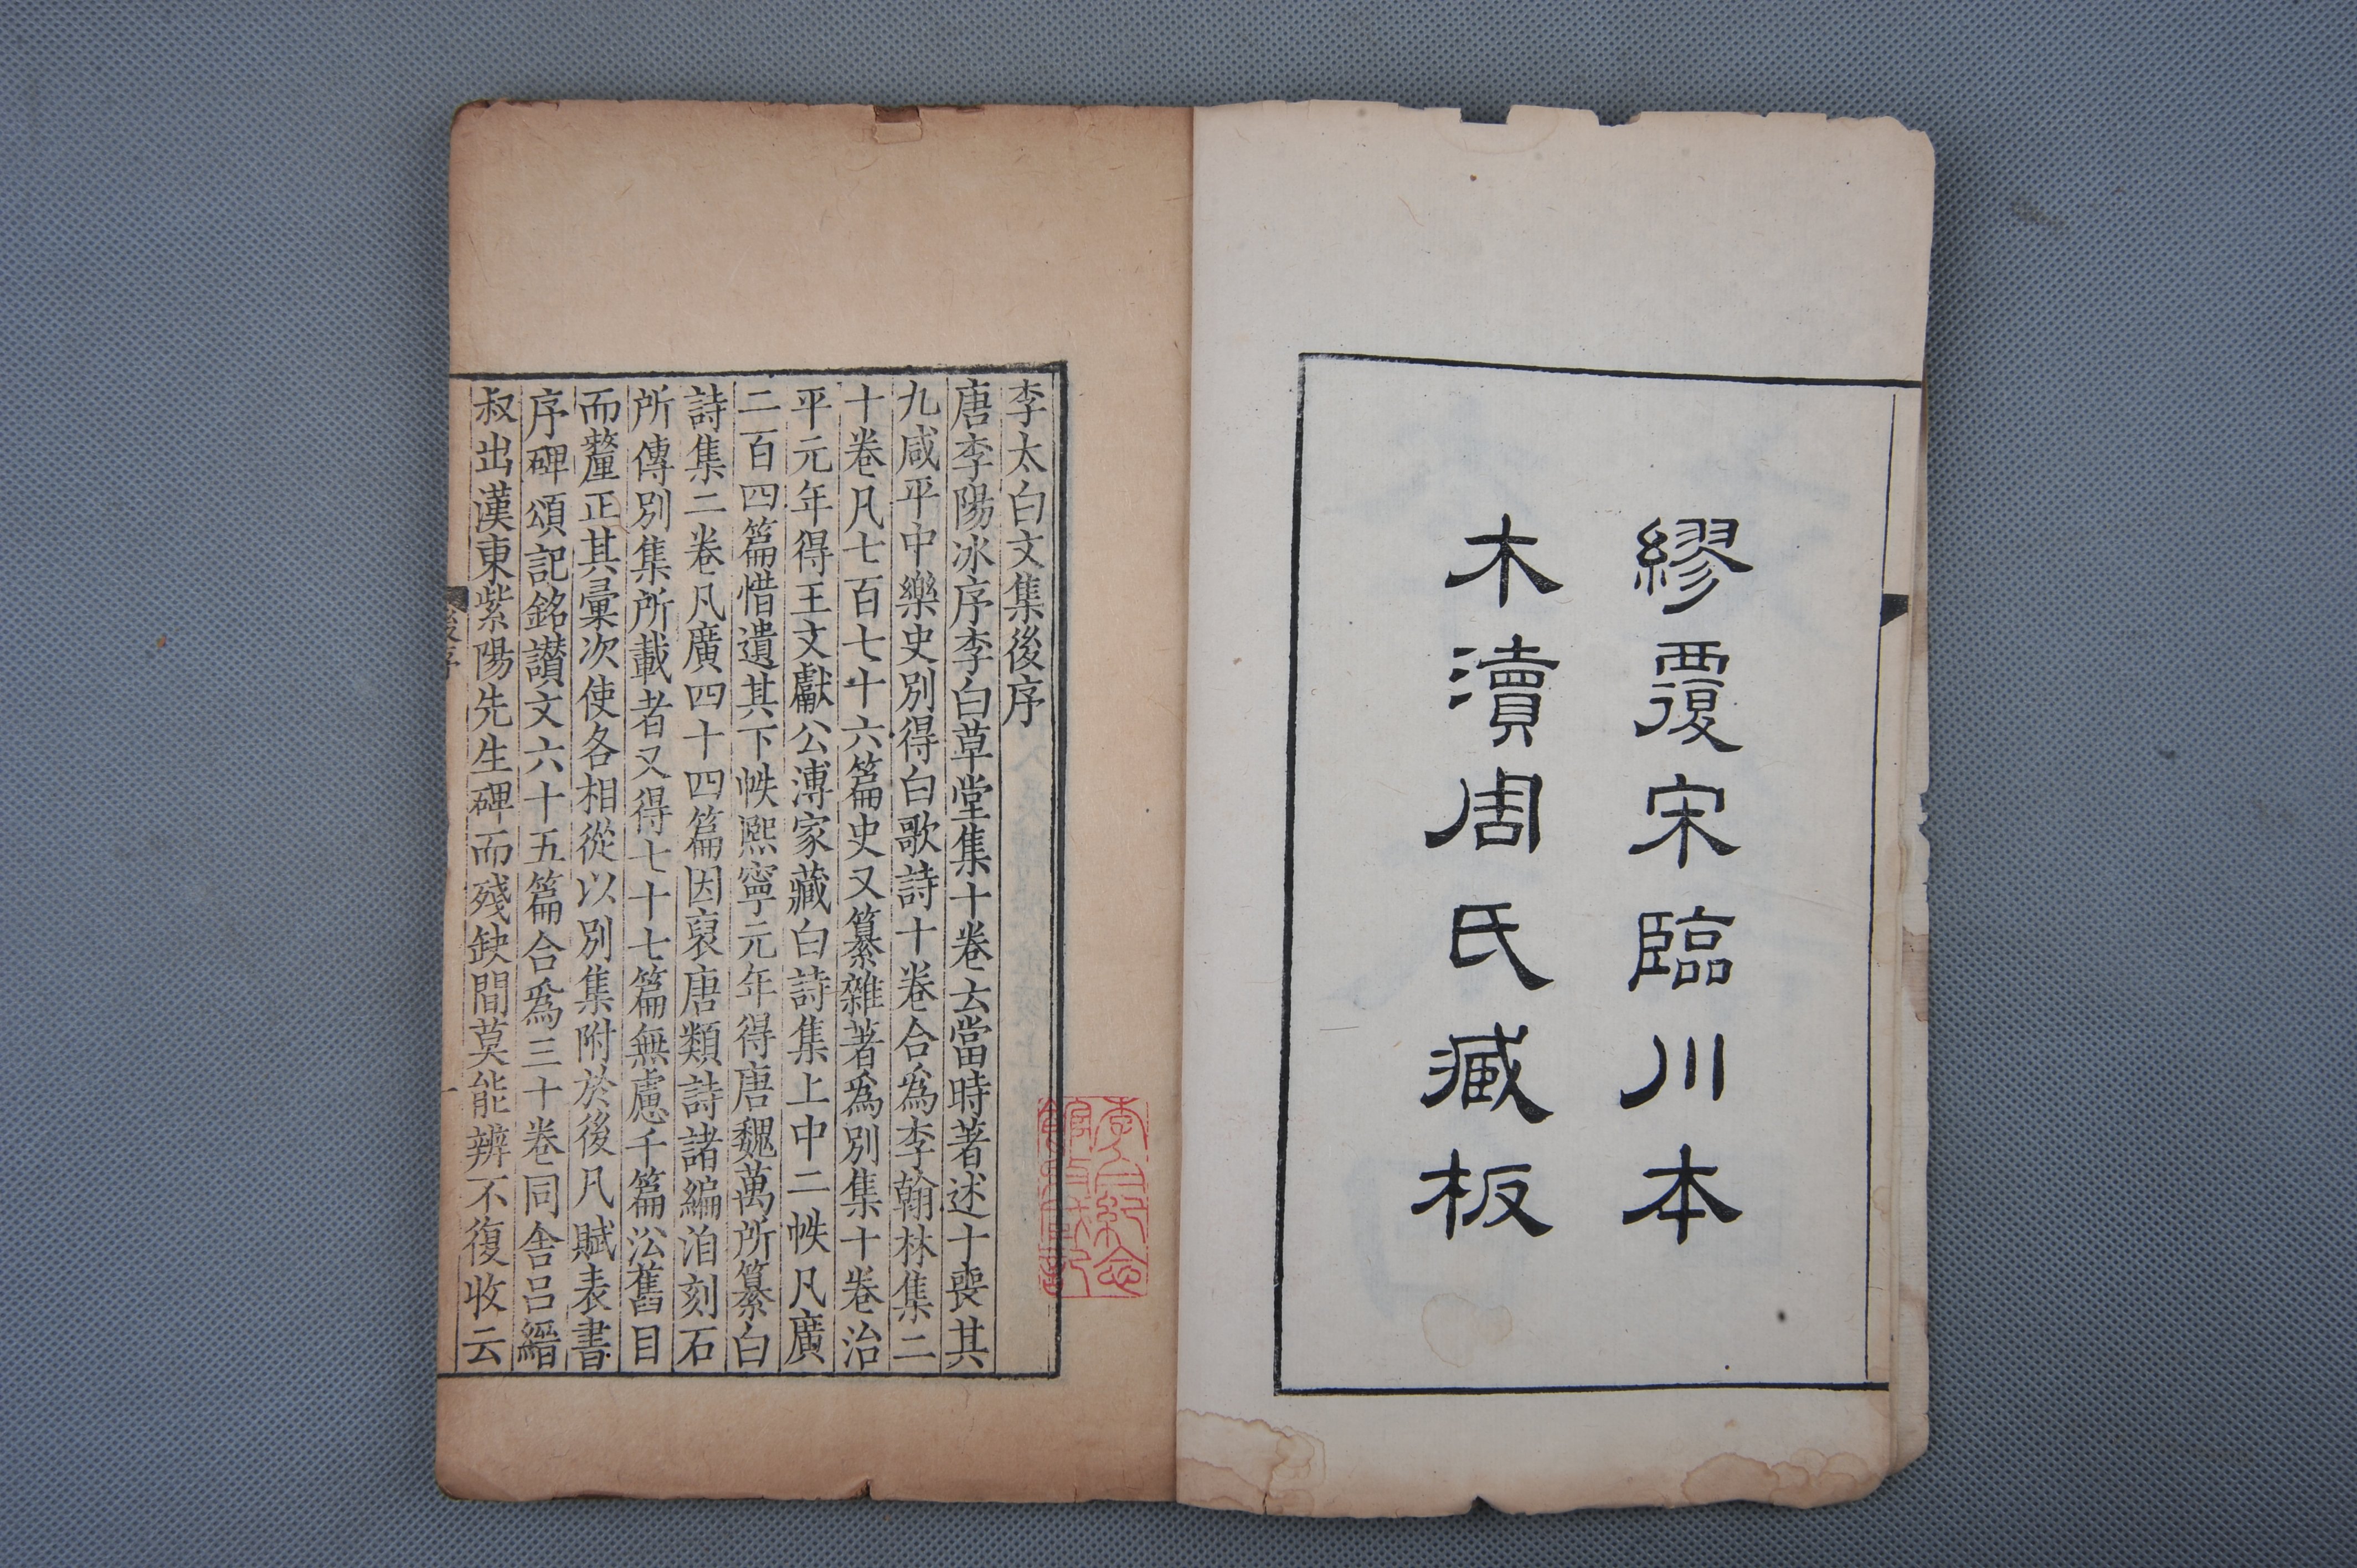 繆覆宋臨川本
木瀆周氏臧板
李太白文集後序
唐李陽冰序李白草堂集十卷云當時著述十喪其
九咸平中樂史別得白歌詩十卷合爲李翰林集二
十卷凡七百七十六篇史又纂雜著爲別集十卷治
平元年得王文獻公溥家藏白詩集上中二帙凡廣
二百四篇惜遺其下帙熈寧元年得唐魏萬所纂白
詩集二卷凡廣四十四篇因裒唐類詩諸編洎刻石
所傳別集所載者又得七十七篇無慮千篇沿舊目
而釐正其彙次使各相從以別集附於後凡賦表書
序碑頌記銘讃文六十五篇合爲三十卷同舍呂縉
叔出漢東紫陽先生碑而殘缺間莫能辨不復收云
後序
一
李白紀念
館收藏記